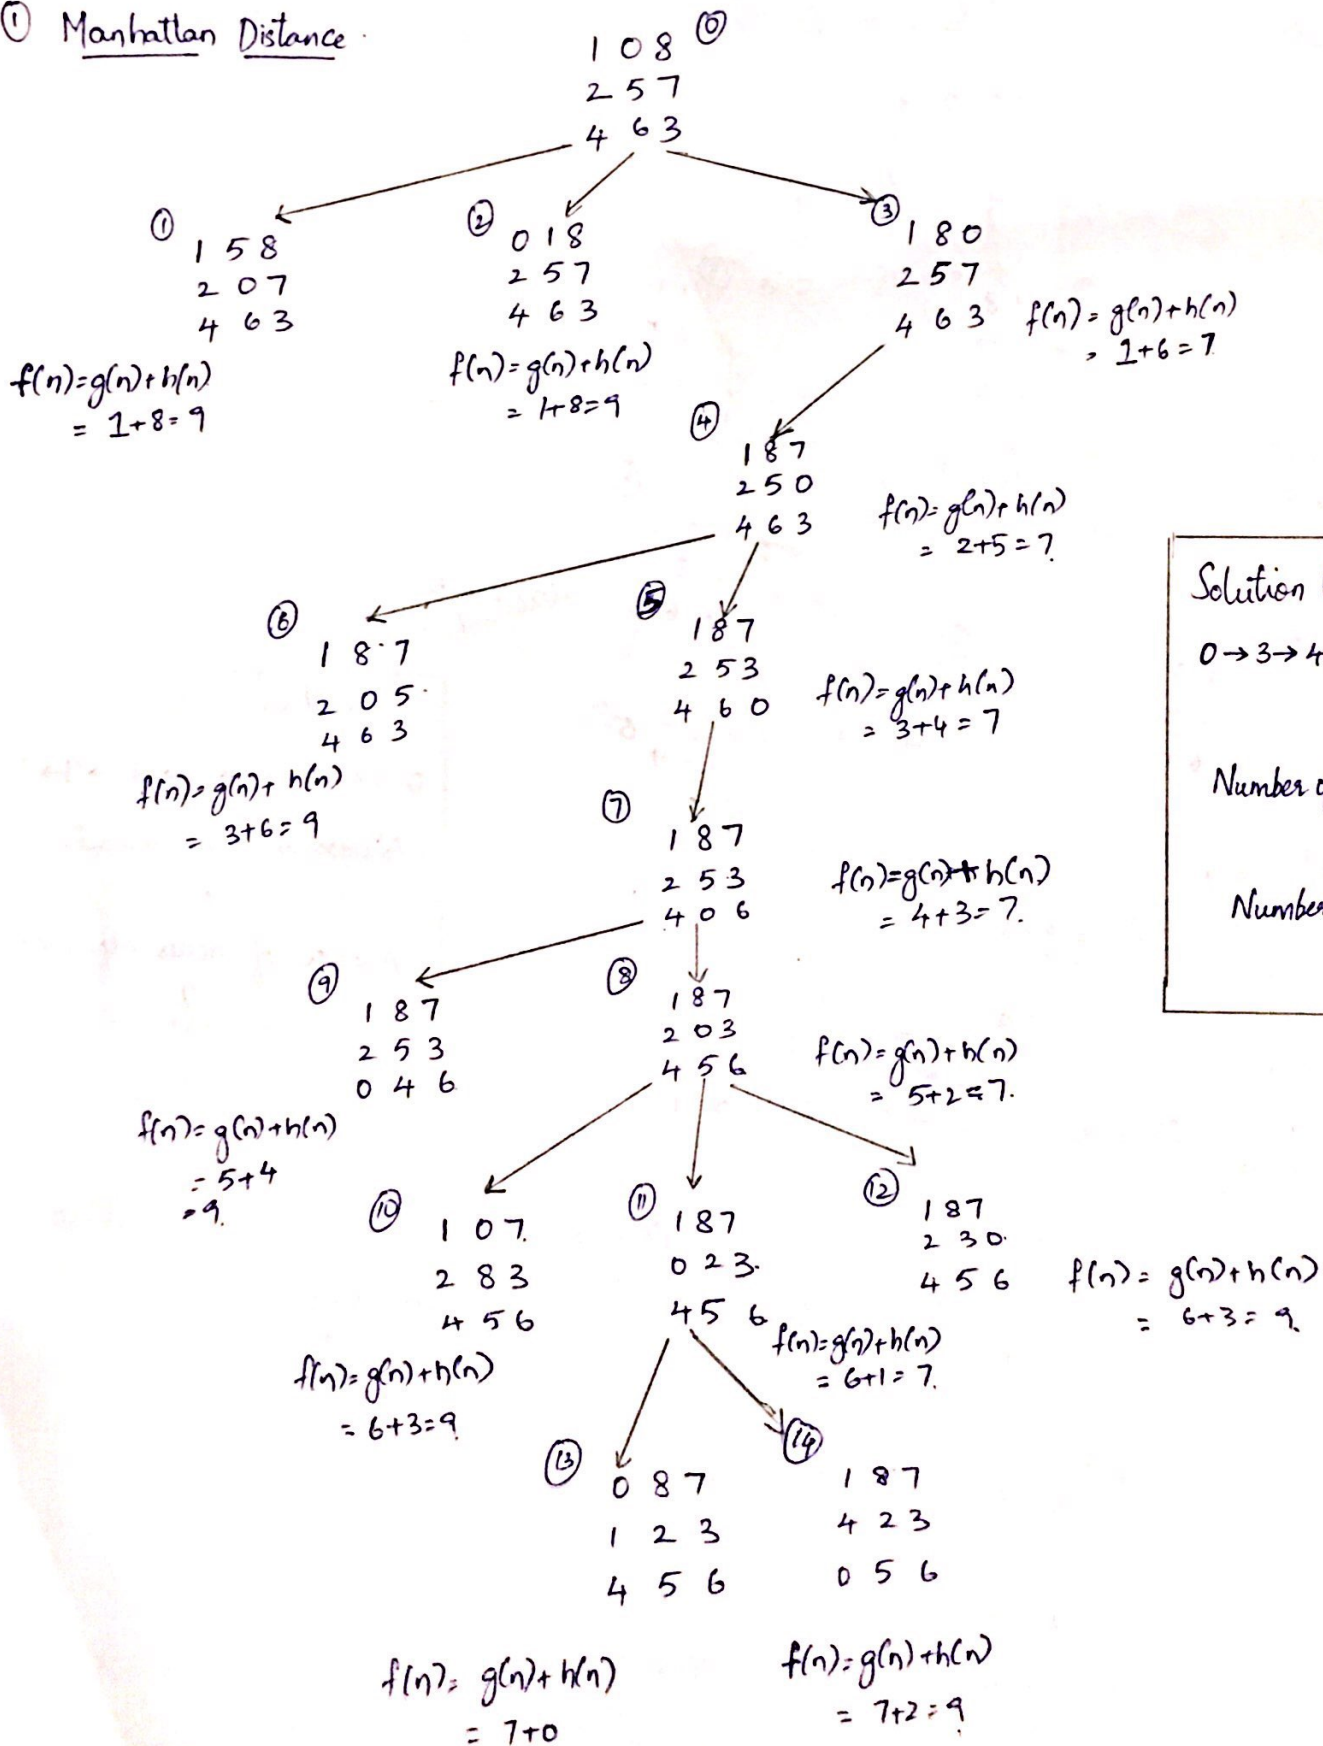 ① Manhattan Distance.
⓪
1 0 8
2 5 7
4 6 3
①
1 5 8
2 0 7
4 6 3
f(n)=g(n)+h(n)
= 1+8=9
②
0 1 8
2 5 7
4 6 3
f(n)=g(n)+h(n)
= 1+8=9
③
1 8 0
2 5 7
4 6 3
f(n)=g(n)+h(n)
= 1+6=7
④
1 8 7
2 5 0
4 6 3
f(n)=g(n)+h(n)
= 2+5=7
Solution
0→3→4
Number
Number
⑥
1 8 7
2 0 5
4 6 3
f(n)=g(n)+h(n)
= 3+6=9
⑤
1 8 7
2 5 3
4 6 0
f(n)=g(n)+h(n)
= 3+4=7
⑦
1 8 7
2 5 3
4 0 6
f(n)=g(n)+h(n)
= 4+3=7.
⑨
1 8 7
2 5 3
0 4 6
f(n)=g(n)+h(n)
= 5+4
= 9.
⑧
1 8 7
2 0 3
4 5 6
f(n)=g(n)+h(n)
= 5+2=7.
⑩
1 0 7.
2 8 3
4 5 6
f(n)=g(n)+h(n)
= 6+3=9
⑪
1 8 7
0 2 3.
4 5 6
f(n)=g(n)+h(n)
= 6+1=7.
⑫
1 8 7
2 3 0.
4 5 6
f(n)=g(n)+h(n)
= 6+3=9
⑬
0 8 7
1 2 3
4 5 6
f(n)=g(n)+h(n)
= 7+0
⑭
1 8 7
4 2 3
0 5 6
f(n)=g(n)+h(n)
= 7+2=9